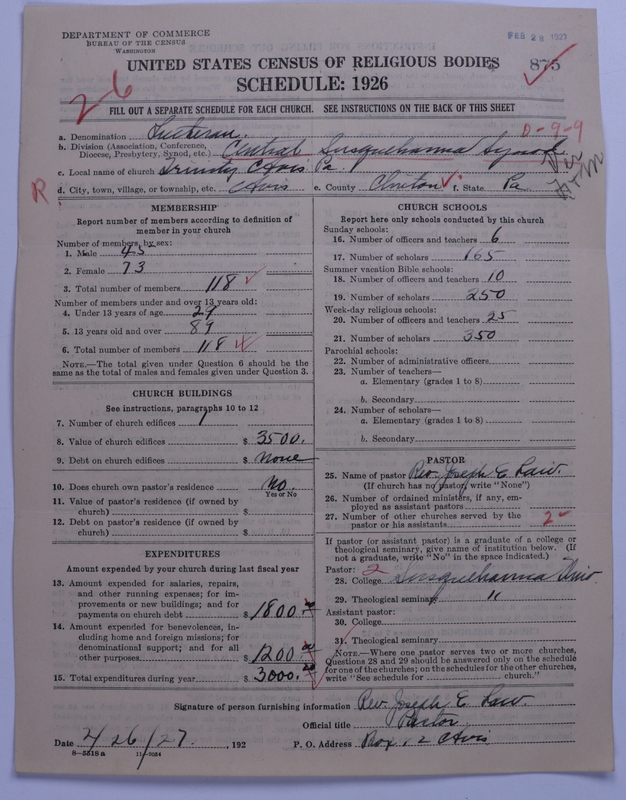 DEPARTMENT OF COMMERCE
BUREAU OF THE CENSUS
WASHINGTON
FEB 28 1927
UNITED STATES CENSUS OF RELIGIOUS BODIES
875
SCHEDULE: 1926
26
FILL OUT A SEPARATE SCHEDULE FOR EACH CHURCH. SEE INSTRUCTIONS ON THE BACK OF THIS SHEET
0-9-9
a. Denomination Lutheran.
b. Division (Association, Conference, Diocese, Presbytery, Synod, etc.) Central Susquehanna Synod
c. Local name of church Trinity Avis Pa.
R
d. City, town, village, or township, etc. Avis e. County Clinton f. State Pa
MEMBERSHIP
Report number of members according to definition of
member in your church
Number of members by sex:
1. Male 45
2. Female 73
3. Total number of members 118
Number of members under and over 13 years old:
4. Under 13 years of age 29
5. 13 years old and over 89
6. Total number of members 118
NOTE.—The total given under Question 6 should be the
same as the total of males and females given under Question 3.
CHURCH BUILDINGS
See instructions, paragraphs 10 to 12
7. Number of church edifices 1
8. Value of church edifices $ 3500.
9. Debt on church edifices $ none
10. Does church own pastor's residence? No.
Yes or No
11. Value of pastor's residence (if owned by
church) $
12. Debt on pastor's residence (if owned by
church) $
EXPENDITURES
Amount expended by your church during last fiscal year
13. Amount expended for salaries, repairs,
and other running expenses; for im-
provements or new buildings; and for
payments on church debt $ 1800.00
14. Amount expended for benevolences, in-
cluding home and foreign missions; for
denominational support; and for all
other purposes $ 1200.00
15. Total expenditures during year $ 3000.00
CHURCH SCHOOLS
Report here only schools conducted by this church
Sunday schools:
16. Number of officers and teachers 6
17. Number of scholars 165
Summer vacation Bible schools:
18. Number of officers and teachers 10
19. Number of scholars 250
Week-day religious schools:
20. Number of officers and teachers 25
21. Number of scholars 350
Parochial schools:
22. Number of administrative officers
23. Number of teachers—
a. Elementary (grades 1 to 8)
b. Secondary
24. Number of scholars—
a. Elementary (grades 1 to 8)
b. Secondary
PASTOR
25. Name of pastor Rev. Joseph E. Law.
(If church has no pastor, write "None")
26. Number of ordained ministers, if any, em-
ployed as assistant pastors
27. Number of other churches served by the
pastor or his assistants 2
If pastor (or assistant pastor) is a graduate of a college or
theological seminary, give name of institution below. (If
not a graduate, write "No" in the space indicated.)
Pastor: 2
28. College Susquehanna Univ.
29. Theological seminary "
Assistant pastor:
30. College
31. Theological seminary
NOTE.—Where one pastor serves two or more churches,
Questions 28 and 29 should be answered only on the schedule
for one of the churches; on the schedules for the other churches,
write "See schedule for church."
Signature of person furnishing information Rev. Joseph E. Law.
Official title Pastor
Date 2/26/27. , 192
P. O. Address Box 12 Avis
8—5518a 11—9054